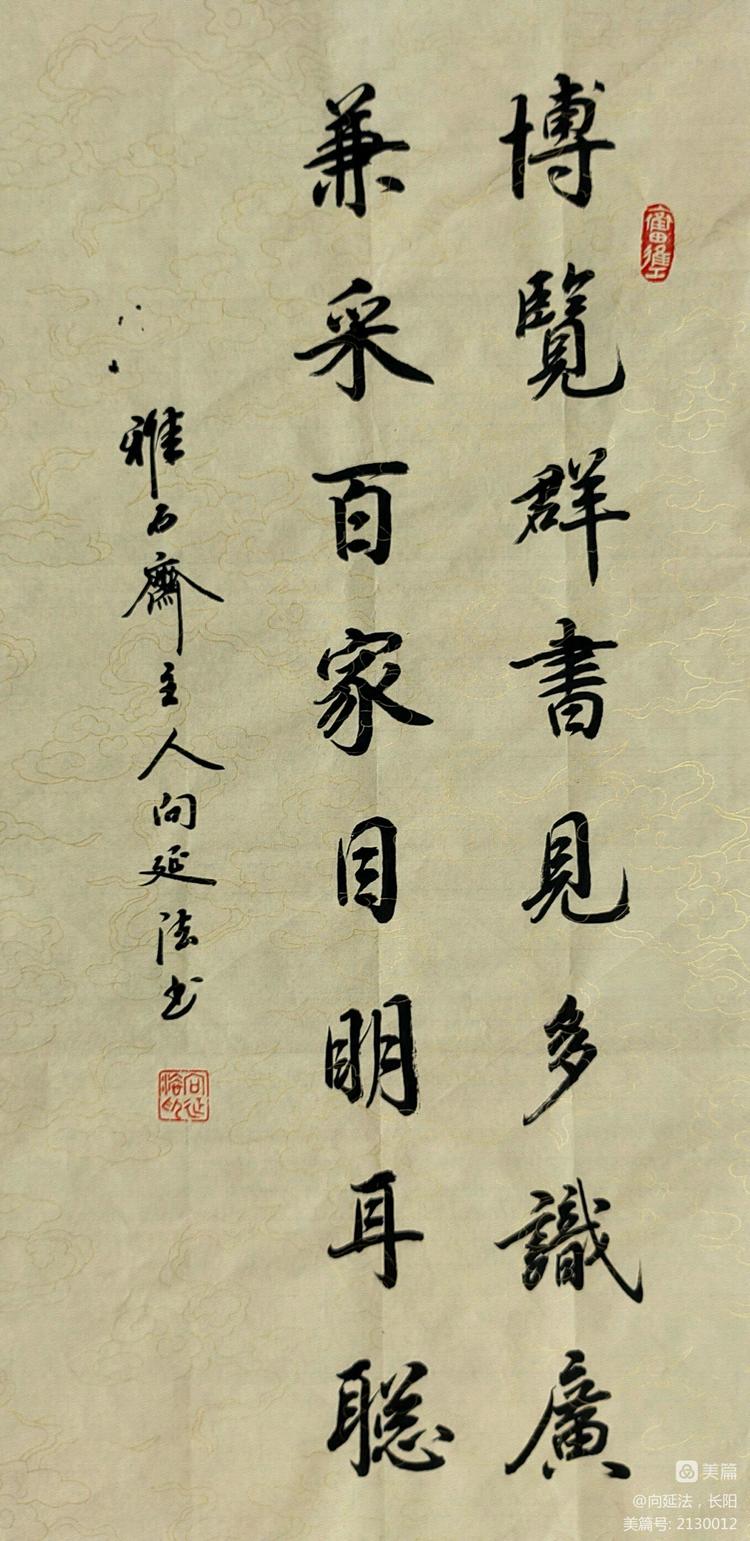 博覽群書見多識廣
兼采百家目明耳聪
雅石齋主人向延法书
美篇
@向延法，长阳
美篇号: 2130012